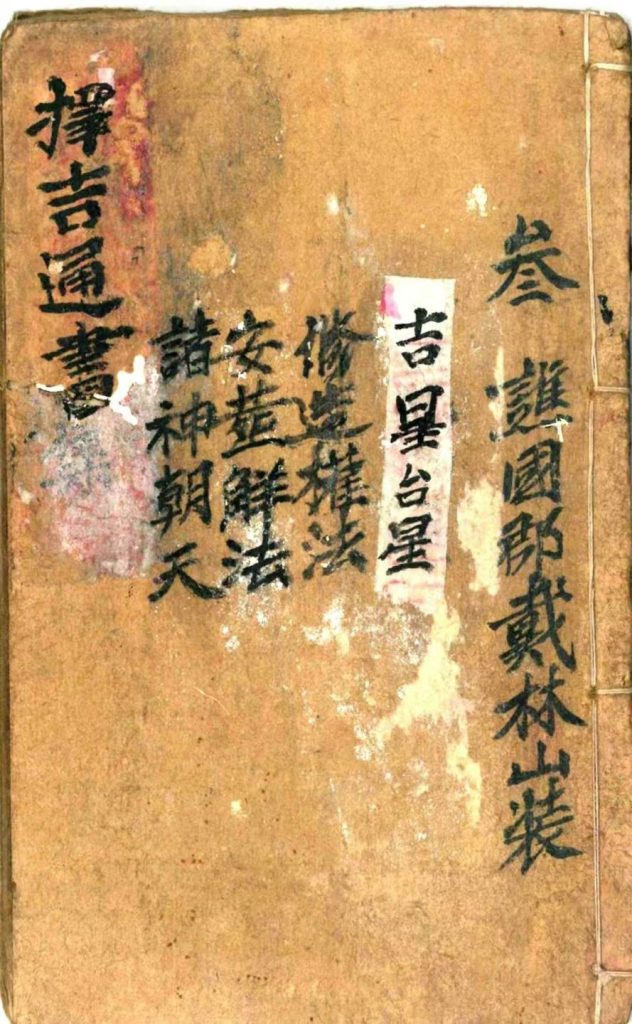 叁 譙國郡戴林山裝
吉星台星
修造權法
安塟觧法
諸神朝天
擇吉通書